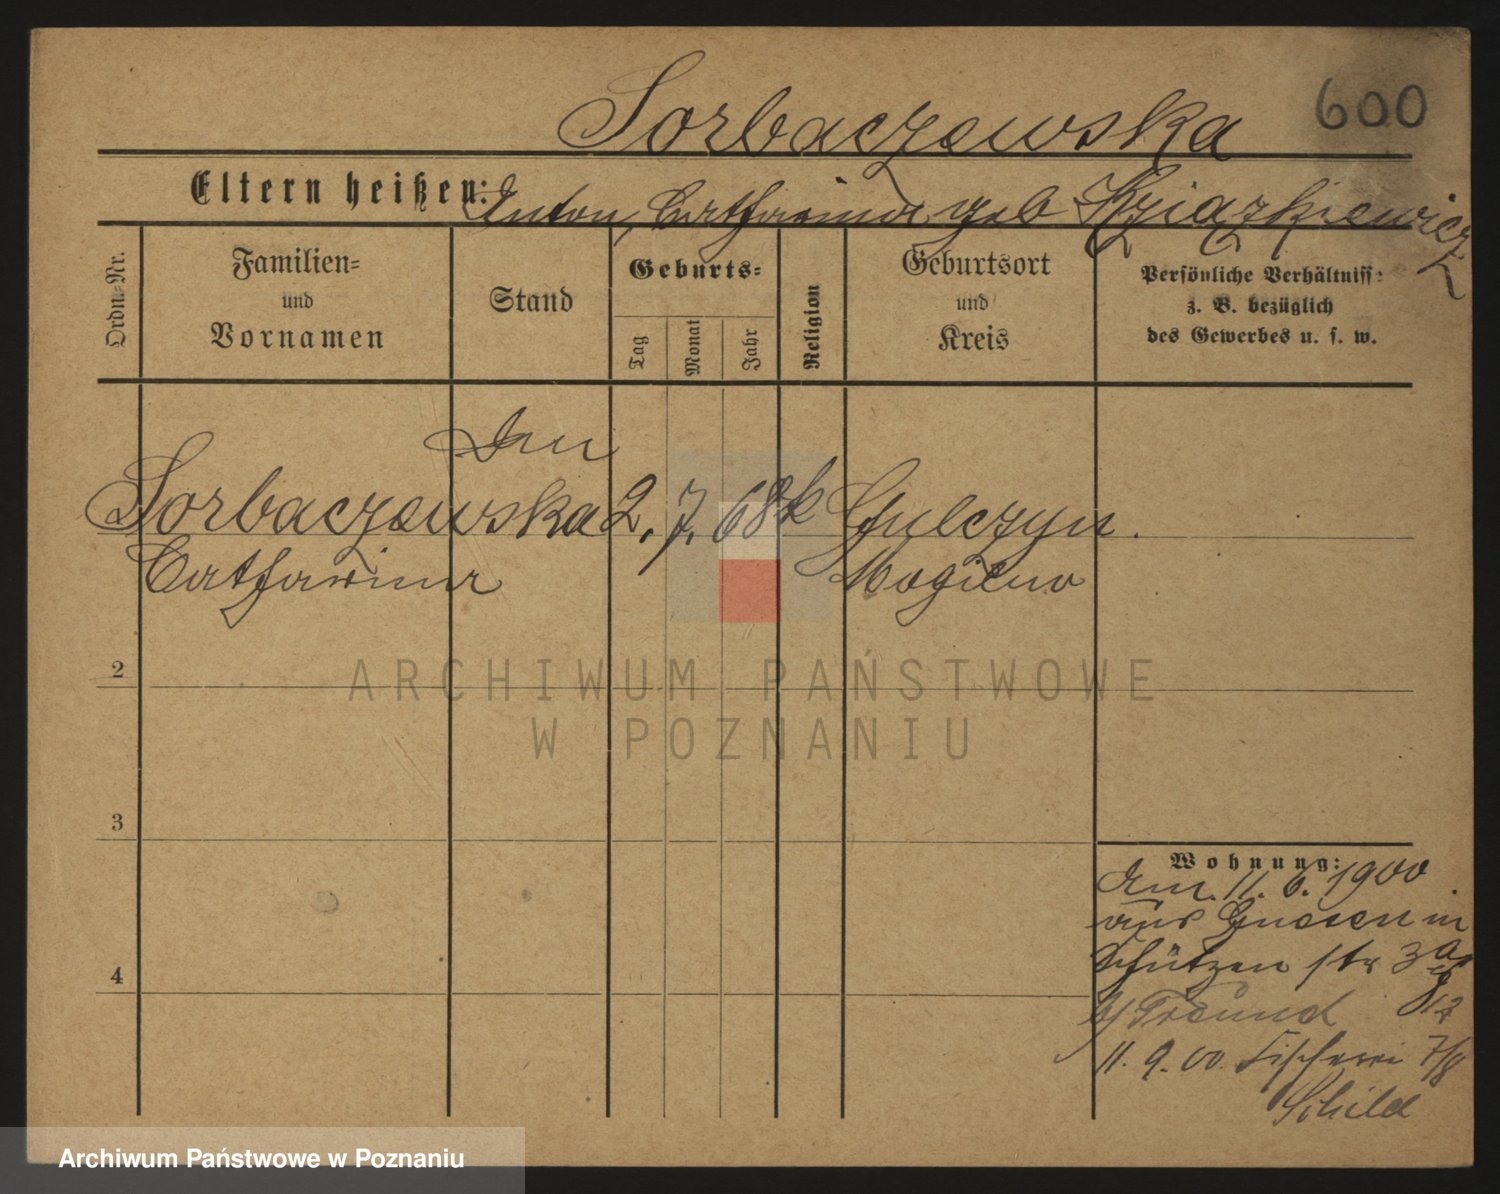 600
Sorbaczewska
Eltern heißen: Anton, Catharina geb Książkiewicz
Ordn.-Nr.
Familien-
und
Vornamen
Stand
Geburts-
Tag
Monat
Jahr
Religion
Geburtsort
und
Kreis
Persönliche Verhältniss
z. B. bezüglich
des Gewerbes u. s. w.
Sorbaczewska 2. 7. 68 k Gulczyn.
Catharina Mogilno
2
ARCHIWUM PAŃSTWOWE
W POZNANIU
3
4
Wohnung:
Am. 11. 6. 1900
aus Gnesen in
Schützen str 3a
b/ Freund
11. 9. 00. Fischerei 7/8
Schild
Archiwum Państwowe w Poznaniu